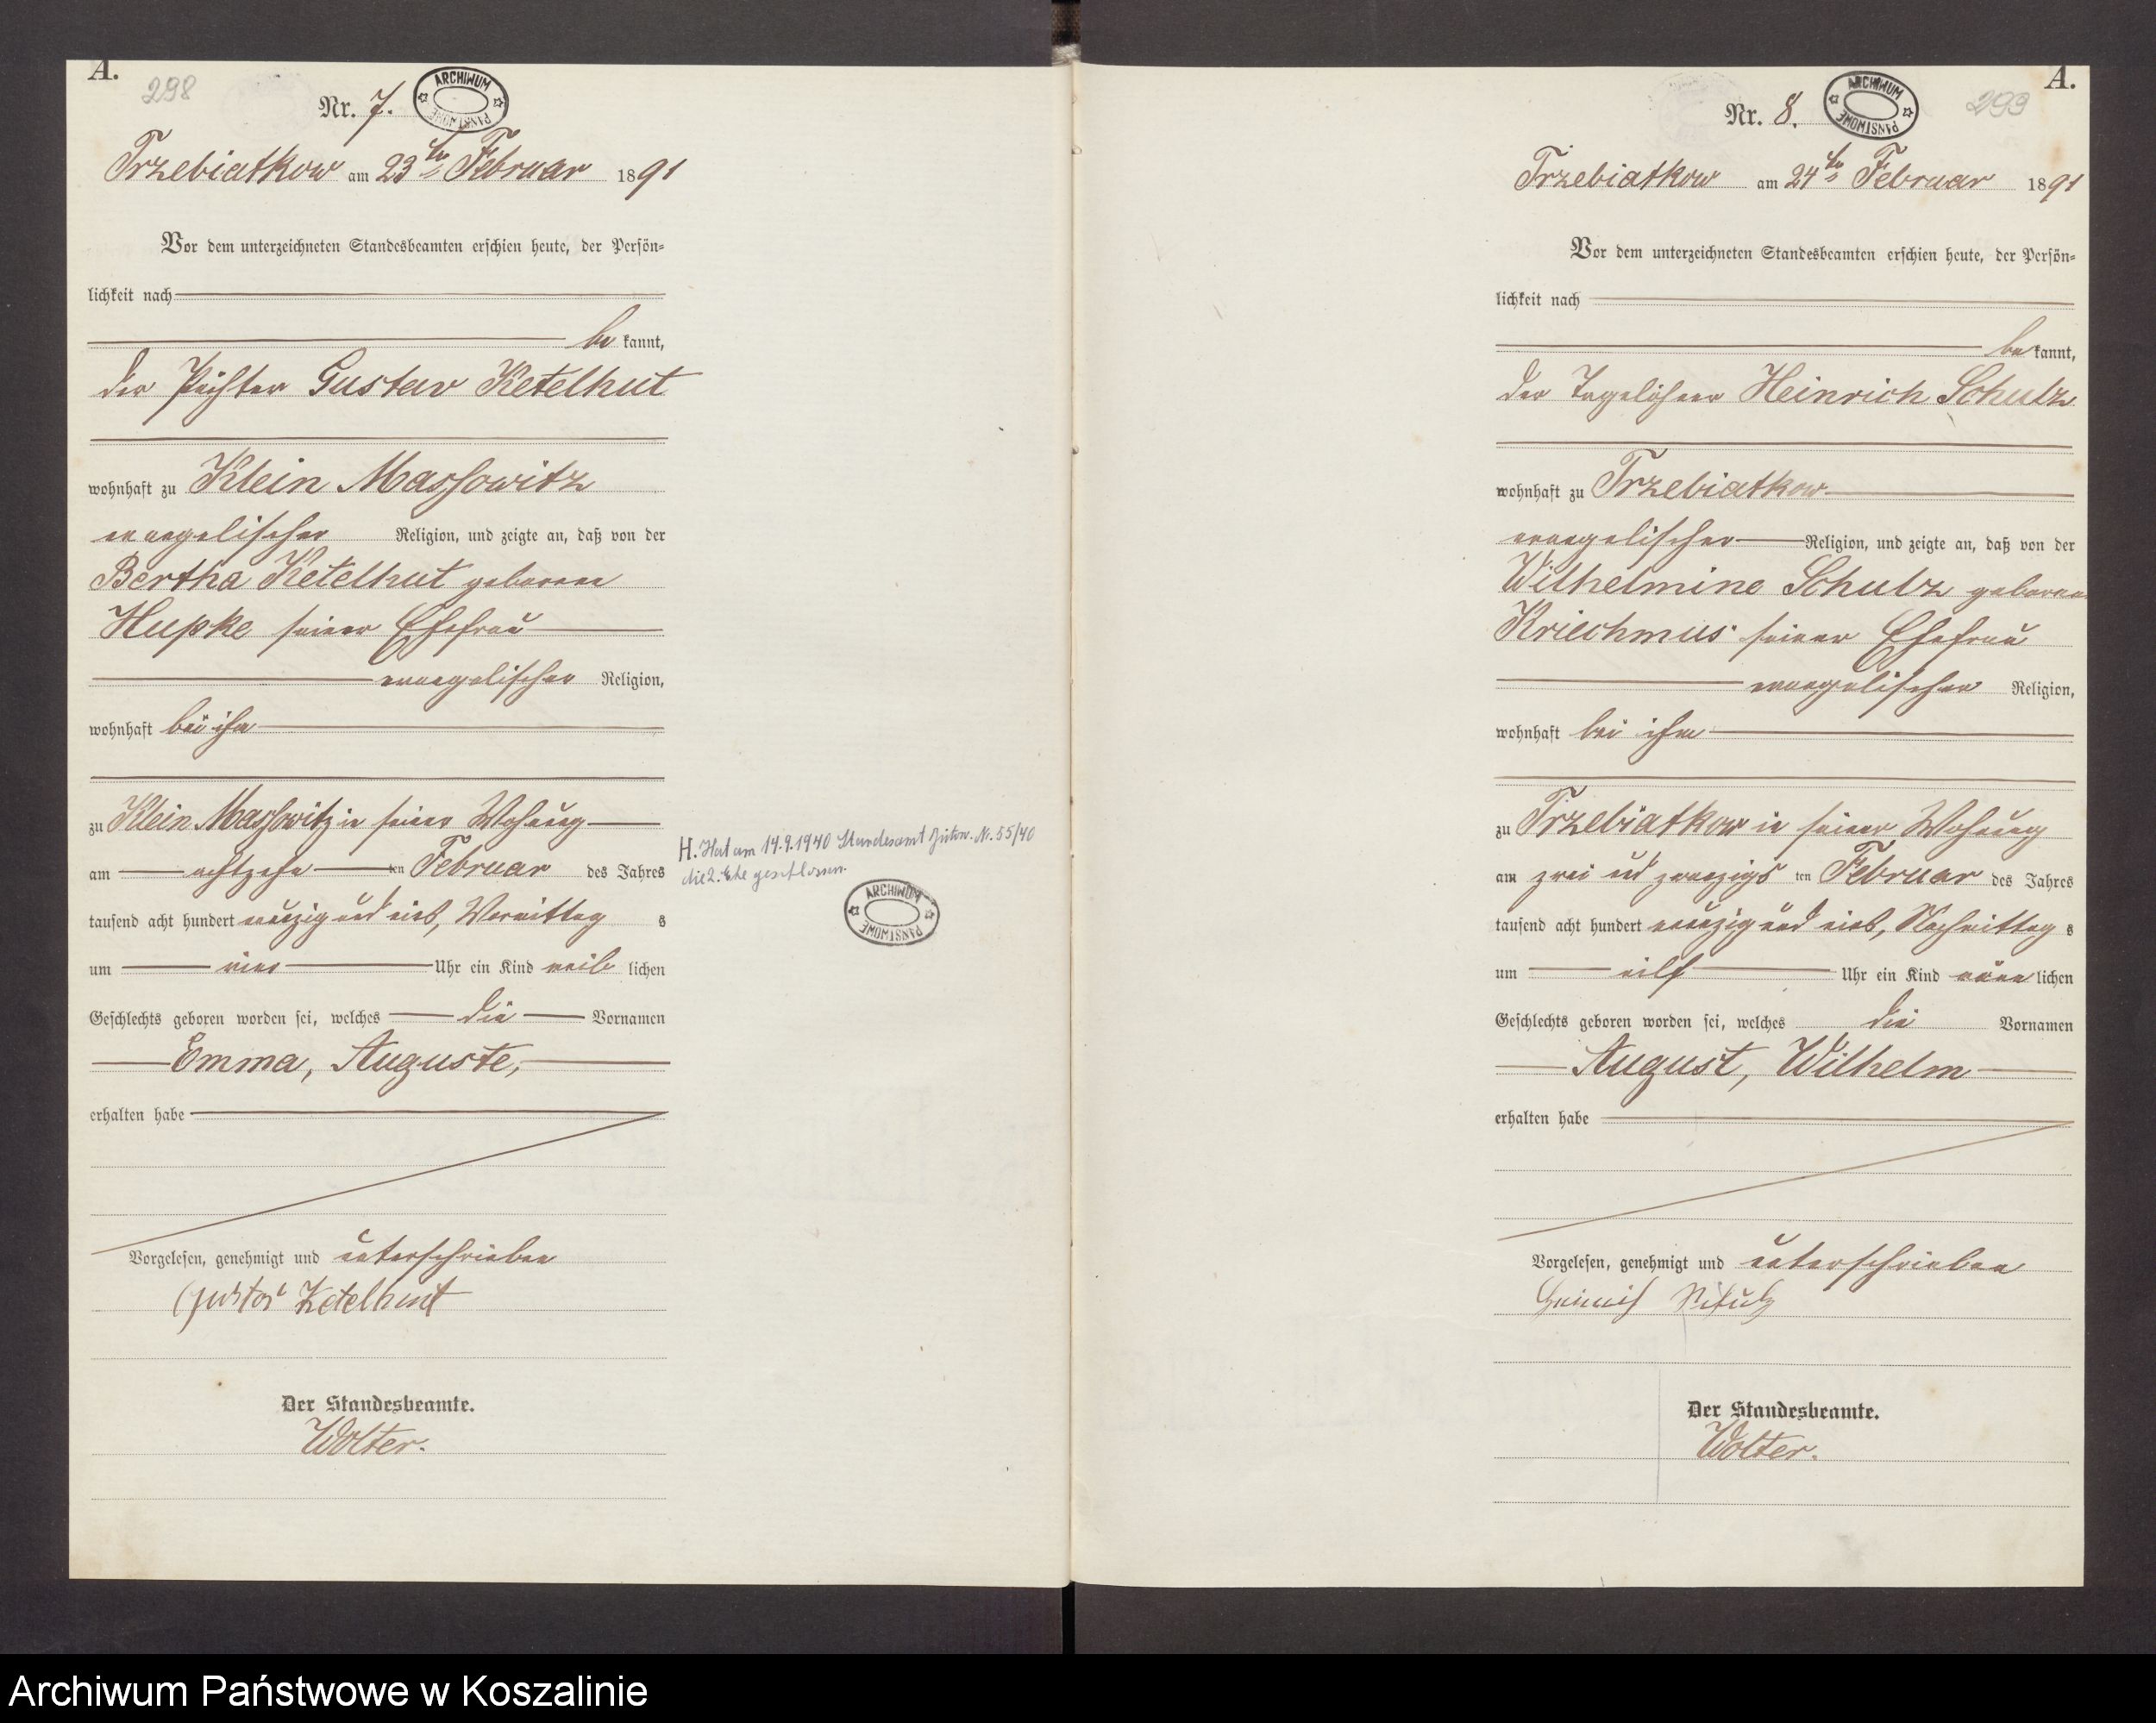 A.
298
Nr. 7.
ARCHIWUM PAŃSTWOWE
Trzebiatkow am 23ten Februar 1891
Vor dem unterzeichneten Standesbeamten erschien heute, der Persön-
lichkeit nach
be kannt,
der Pächter Gustav Ketelhut
wohnhaft zu Klein Massowitz
evangelischer Religion, und zeigte an, daß von der
Bertha Ketelhut geborene
Hupke seiner Ehefrau
evangelischer Religion,
wohnhaft bei ihm
zu Klein Massowitz in seiner Wohnung
am achtzehn ten Februar des Jahres
tausend acht hundert neunzig und eins, Vormittag s
um vier Uhr ein Kind weib lichen
Geschlechts geboren worden sei, welches die Vornamen
Emma, Auguste,
erhalten habe
Vorgelesen, genehmigt und unterschrieben
Gustav Ketelhut
Der Standesbeamte.
Wolter.
H. Hat am 14.9.1940 Standesamt Nr. 55/40
die 2. Ehe geschlossen.
ARCHIWUM PAŃSTWOWE
A.
299
Nr. 8.
ARCHIWUM PAŃSTWOWE
Trzebiatkow am 24ten Februar 1891
Vor dem unterzeichneten Standesbeamten erschien heute, der Persön-
lichkeit nach
be kannt,
der Tagelöhner Heinrich Schulz
wohnhaft zu Trzebiatkow
evangelischer Religion, und zeigte an, daß von der
Wilhelmine Schulz geborene
Kriechmus seiner Ehefrau
evangelischer Religion,
wohnhaft bei ihm
zu Trzebiatkow in seiner Wohnung
am zwei und zwanzigs ten Februar des Jahres
tausend acht hundert neunzig und eins, Nachmittag s
um eilf Uhr ein Kind männ lichen
Geschlechts geboren worden sei, welches die Vornamen
August, Wilhelm
erhalten habe
Vorgelesen, genehmigt und unterschrieben
Heinrich Schulz
Der Standesbeamte.
Wolter.
Archiwum Państwowe w Koszalinie